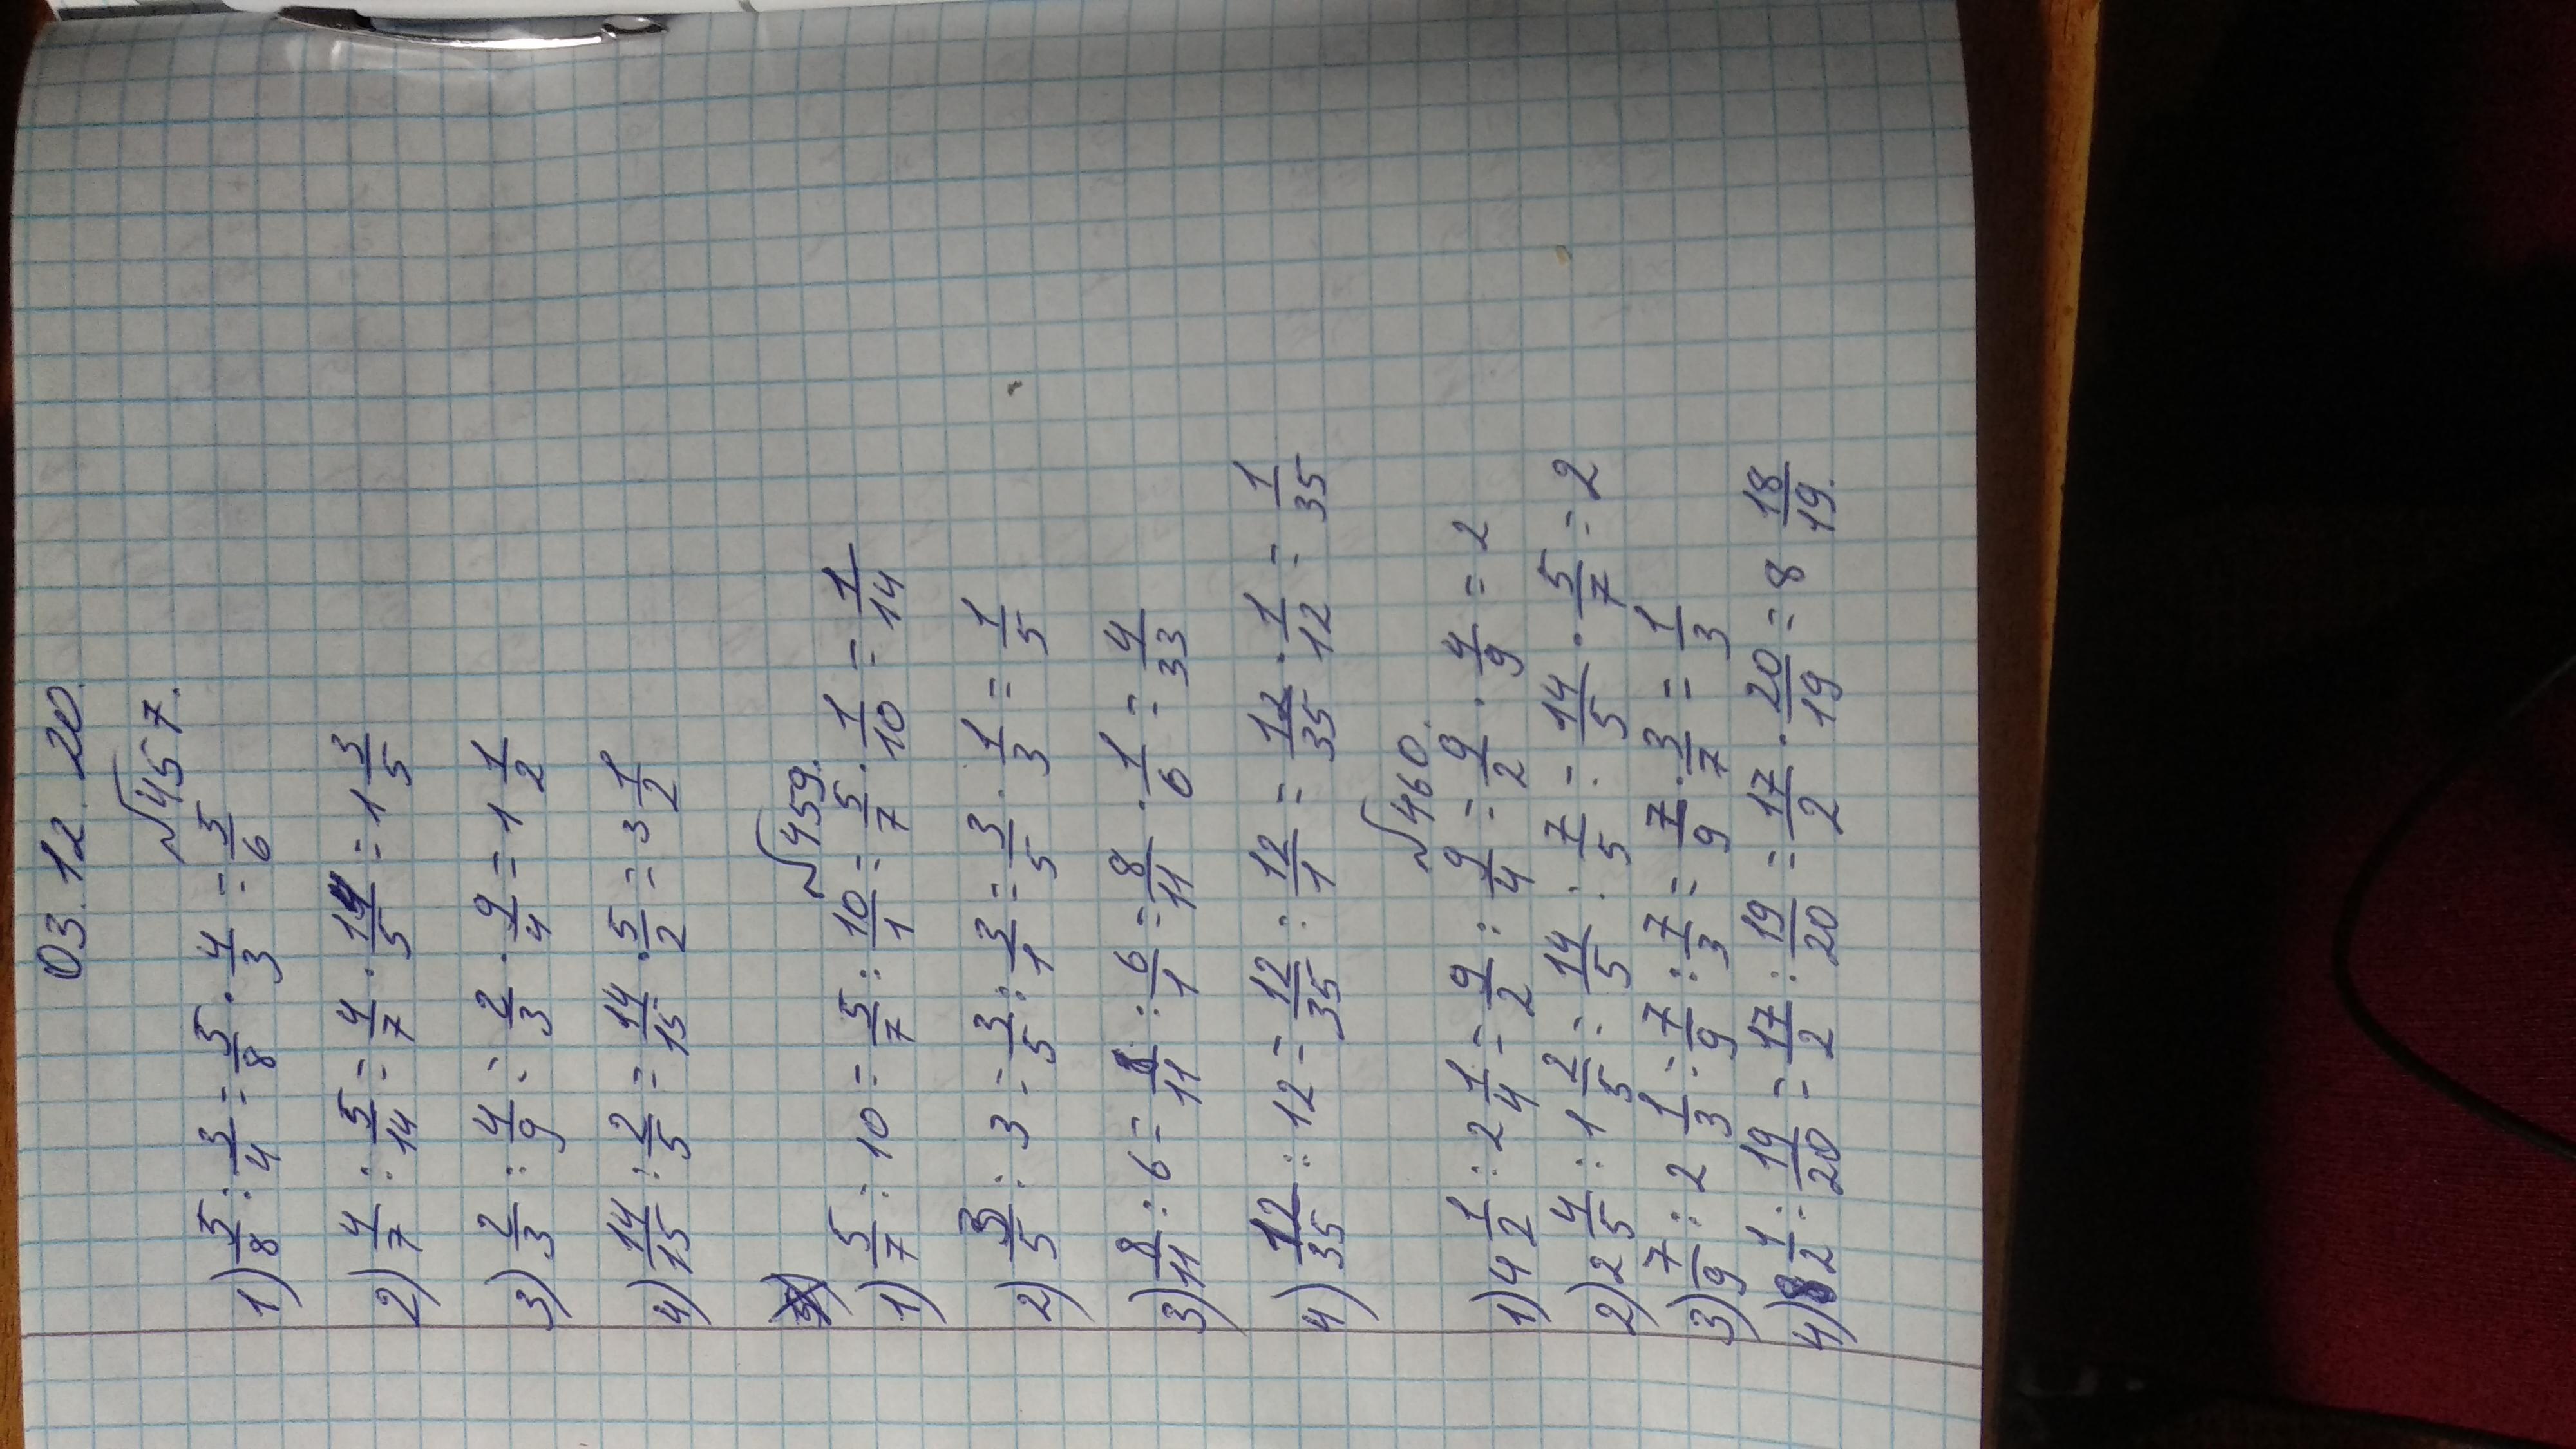 03.12.20.
№457.
1) 5/8 : 3/4 = 5/8 · 4/3 = 5/6
2) 4/7 : 5/14 = 4/7 · 14/5 = 1 3/5
3) 2/3 : 4/9 = 2/3 · 9/4 = 1 1/2
4) 14/15 : 2/5 = 14/15 · 5/2 = 3 1/2
№459.
1) 5/7 : 10 = 5/7 : 10/1 = 5/7 · 1/10 = 1/14
2) 3/5 : 3 = 3/5 : 3/1 = 3/5 · 1/3 = 1/5
3) 8/11 : 6 = 8/11 : 6/1 = 8/11 · 1/6 = 4/33
4) 12/35 : 12 = 12/35 : 12/1 = 12/35 · 1/12 = 1/35
№460.
1) 4 1/2 : 2 1/4 = 9/2 : 9/4 = 9/2 · 4/9 = 2
2) 2 4/5 : 1 2/5 = 14/5 : 7/5 = 14/5 · 5/7 = 2
3) 7/9 : 2 1/3 = 7/9 : 7/3 = 7/9 · 3/7 = 1/3
4) 8 1/2 : 19/20 = 17/2 : 19/20 = 17/2 · 20/19 = 8 18/19.